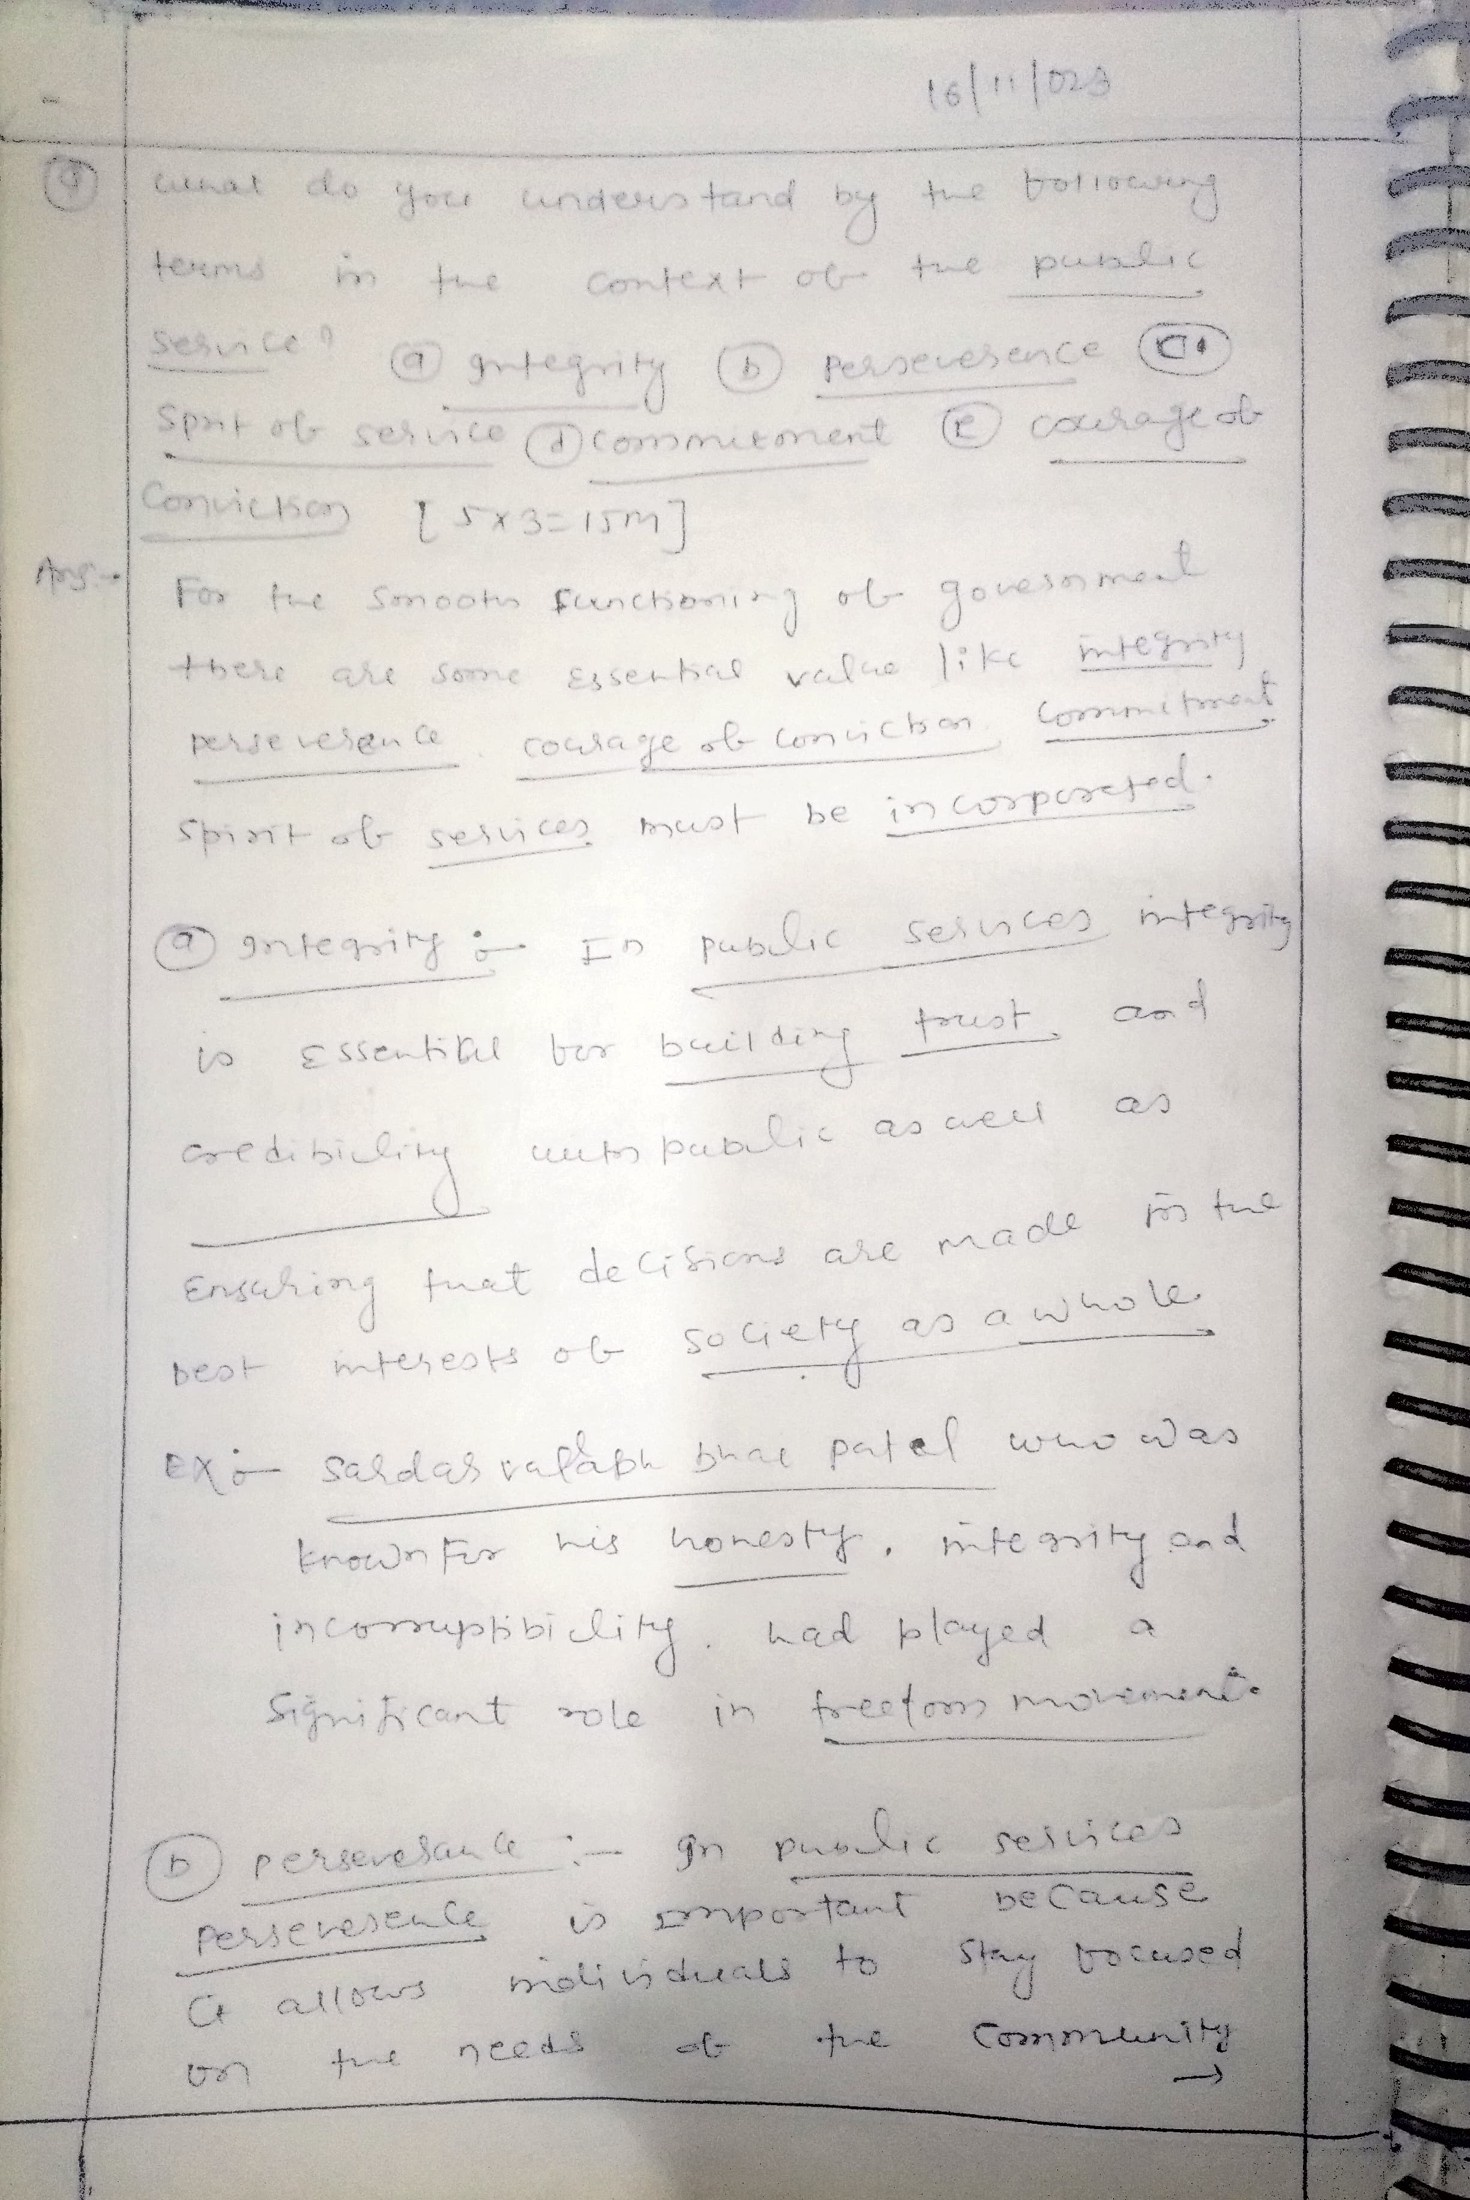 16/11/023
Q what do you understand by the following
terms in the context of the public
service? (a) Integrity (b) Perseverence (c)
Sprit of service (d) commitment (e) courage of
Conviction [5x3=15M]
Ans:- For the smooth functioning of government
there are some essential value like integrity
perseverence, courage of conviction, Commitment
spirit of services must be incorporated.
(a) Integrity :- In public services, integrity
is essential for building trust, and
credibility with public as well as
Ensuring that decisions are made in the
best interests of society as a whole.
EX:- Sardar valabh bhai patel who was
known for his honesty, integrity and
incorruptibility. had played a
Significant role in freedom movement.
(b) perseverance :- In public services
Perseverence is important because
it allows individuals to stay focused
on the needs of the community →